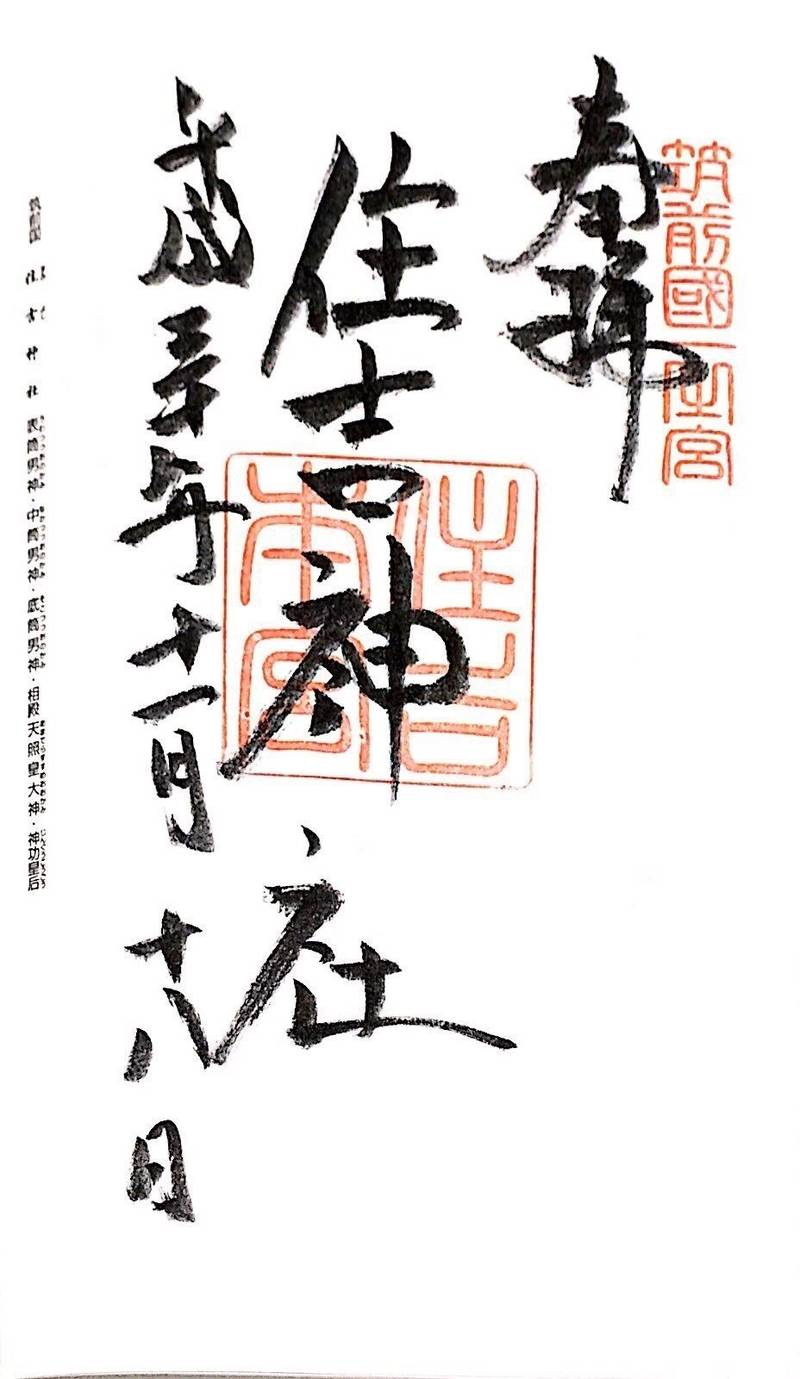 筑前國一之宮
奉拝
住吉神社
住吉本宮
平成三十年十一月十八日
筑前国 住吉神社 表筒男神・中筒男神・底筒男神・相殿天照皇大神・神功皇后